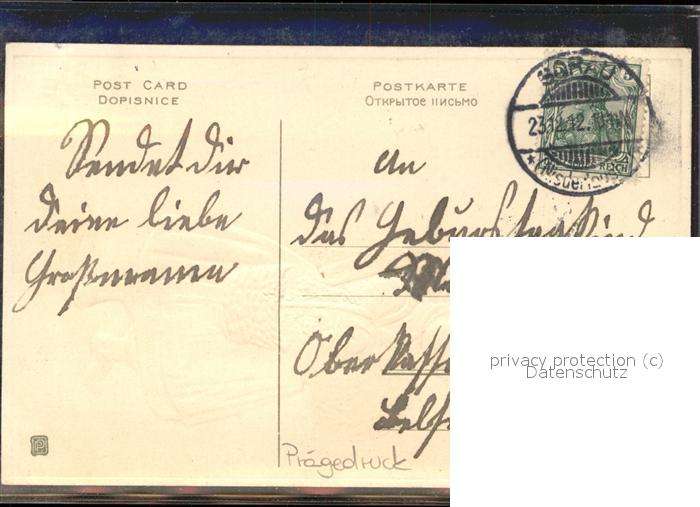 POST CARD
DOPISNICE
POSTKARTE
Открытое письмо
SORAU
23.12.12.
Sendet dir
deine liebe
Großmama
An
das Geburtstagskind
Ober
privacy protection (c)
Datenschutz
Prägedruck
REICH